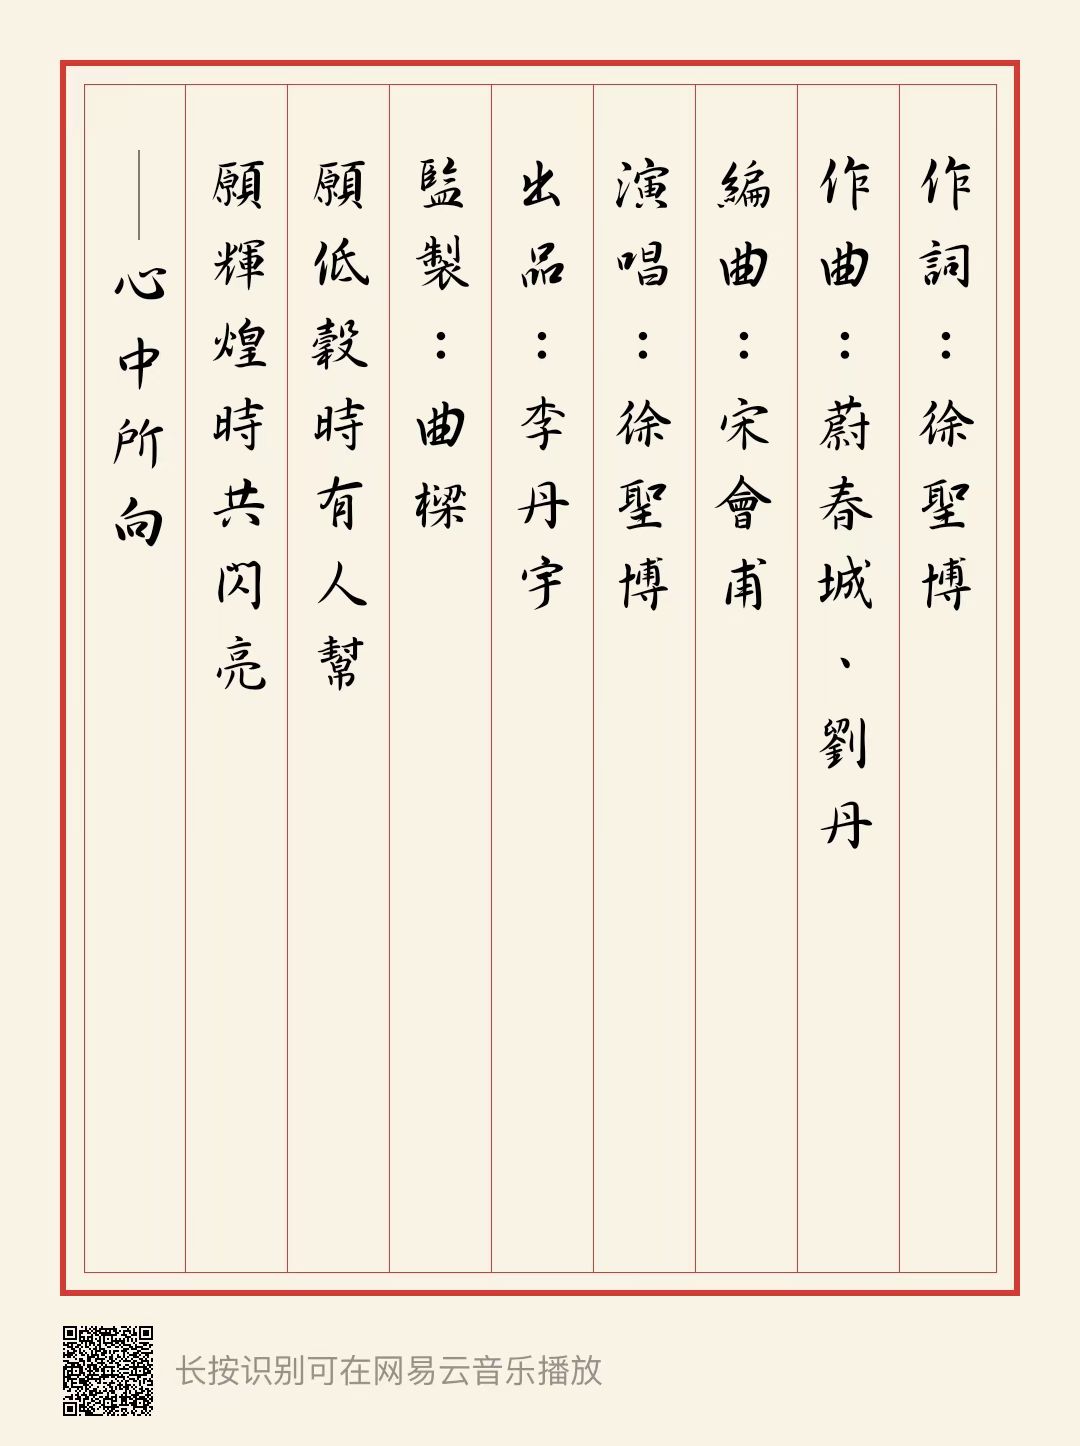 作詞：徐聖博
作曲：蔚春城、劉丹
編曲：宋會甫
演唱：徐聖博
出品：李丹宇
監製：曲樑
願低穀時有人幫
願輝煌時共閃亮
——心中所向
长按识别可在网易云音乐播放